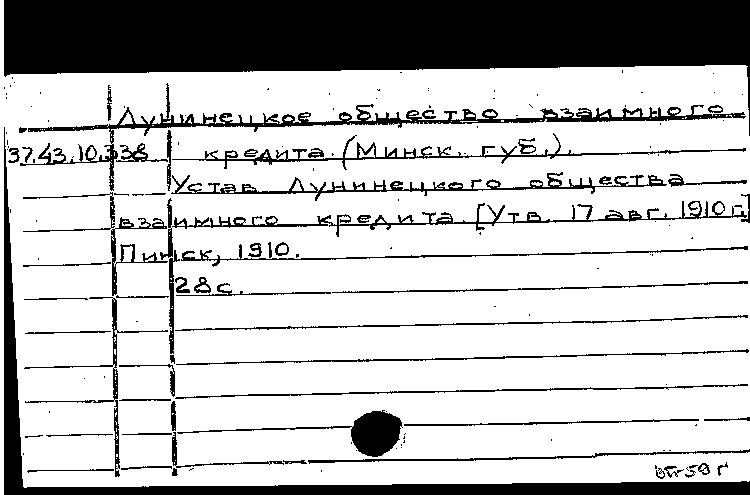 Лунинецкое общество взаимного
37.43.10.338 кредита (Минск. губ.).
Устав Лунинецкого общества
взаимного кредита. [Утв. 17 авг. 1910 г.]
Пинск, 1910.
28 с.